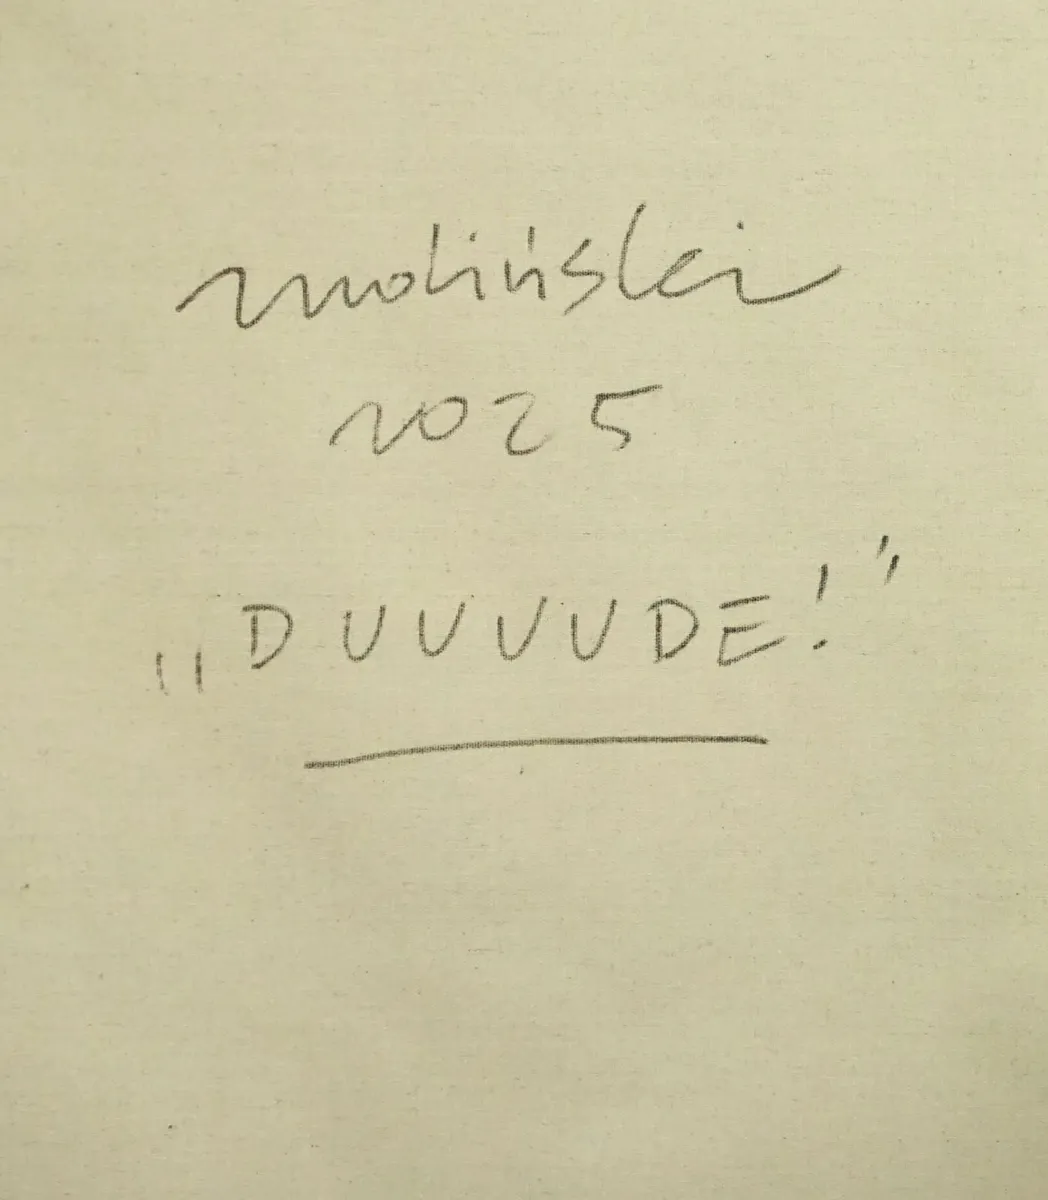 moliński
2025
„DUUUUDE!”